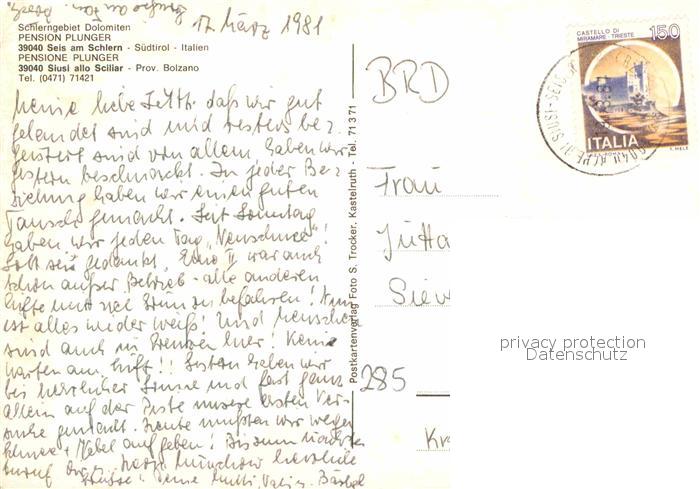 17. März 1981
Schlerngebiet Dolomiten
PENSION PLUNGER
39040 Seis am Schlern - Südtirol - Italien
PENSIONE PLUNGER
39040 Siusi allo Sciliar - Prov. Bolzano
Tel. (0471) 71421
Meine liebe Jutta! daß wir gut
gelandet sind und restlos be=
geistert sind von allem haben wir
gestern beschnackt. In jeder Be=
ziehung haben wir einen guten
Tausch gemacht. Seit Sonntag
haben wir jeden Tag "Neuschnee"!
Gott sei gedankt, II war auch
schon außer Betrieb - alle anderen
Lifte nur viel zu befahren! Nun
ist alles wieder weiß! Und Menschen
sind auch in Grenzen hier! Keine
Warten am Lift!! Gestern haben wir
bei herrlicher Sonne und fast ganz
allein auf der Piste unsere ersten Ver=
suche gemacht. Heute mußten wir wegen
Schnee + Nebel aufgeben! Bis zum nächsten
herzliche
Grüße! Deine Mutti,
Postkartenverlag Foto S. Trocker, Kastelruth - Tel. 71371
BRD
Frau
Jutta
Siew
285
Kr
CASTELLO DI
MIRAMARE - TRIESTE
150
ITALIA
privacy protection
Datenschutz